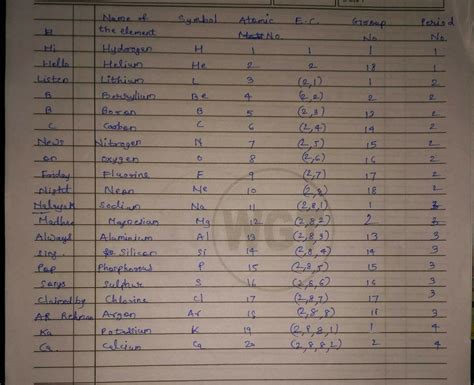 Name of the element Symbol Atomic No. E.C. Group No Period No.
Hi Hydrogen H 1 1 1 1
Hello Helium He 2 2 18 1
Listen Lithium L 3 (2,1) 1 2
B Beryylium Be 4 (2,2) 2 2
B Boron B 5 (2,3) 13 2
C Carbon C 6 (2,4) 14 2
News Nitrogen N 7 (2,5) 15 2
on oxygen O 8 (2,6) 16 2
Friday Fluorine F 9 (2,7) 17 2
Night Neon Ne 10 (2,8) 18 2
Sodium Na 11 (2,8,1) 1 3
Magnesium Mg 12 (2,8,2) 2 3
Always Aluminium Al 13 (2,8,3) 13 3
Sing Silicon Si 14 (2,8,4) 14 3
Pop Phosphorous P 15 (2,8,5) 15 3
Songs Sulphur S 16 (2,8,6) 16 3
Claimed by Chlorine Cl 17 (2,8,7) 17 3
AR Rehman Argon Ar 18 (2,8,8) 18 3
Ka Potassium K 19 (2,8,8,1) 1 4
Ca Calcium Ca 20 (2,8,8,2) 2 4